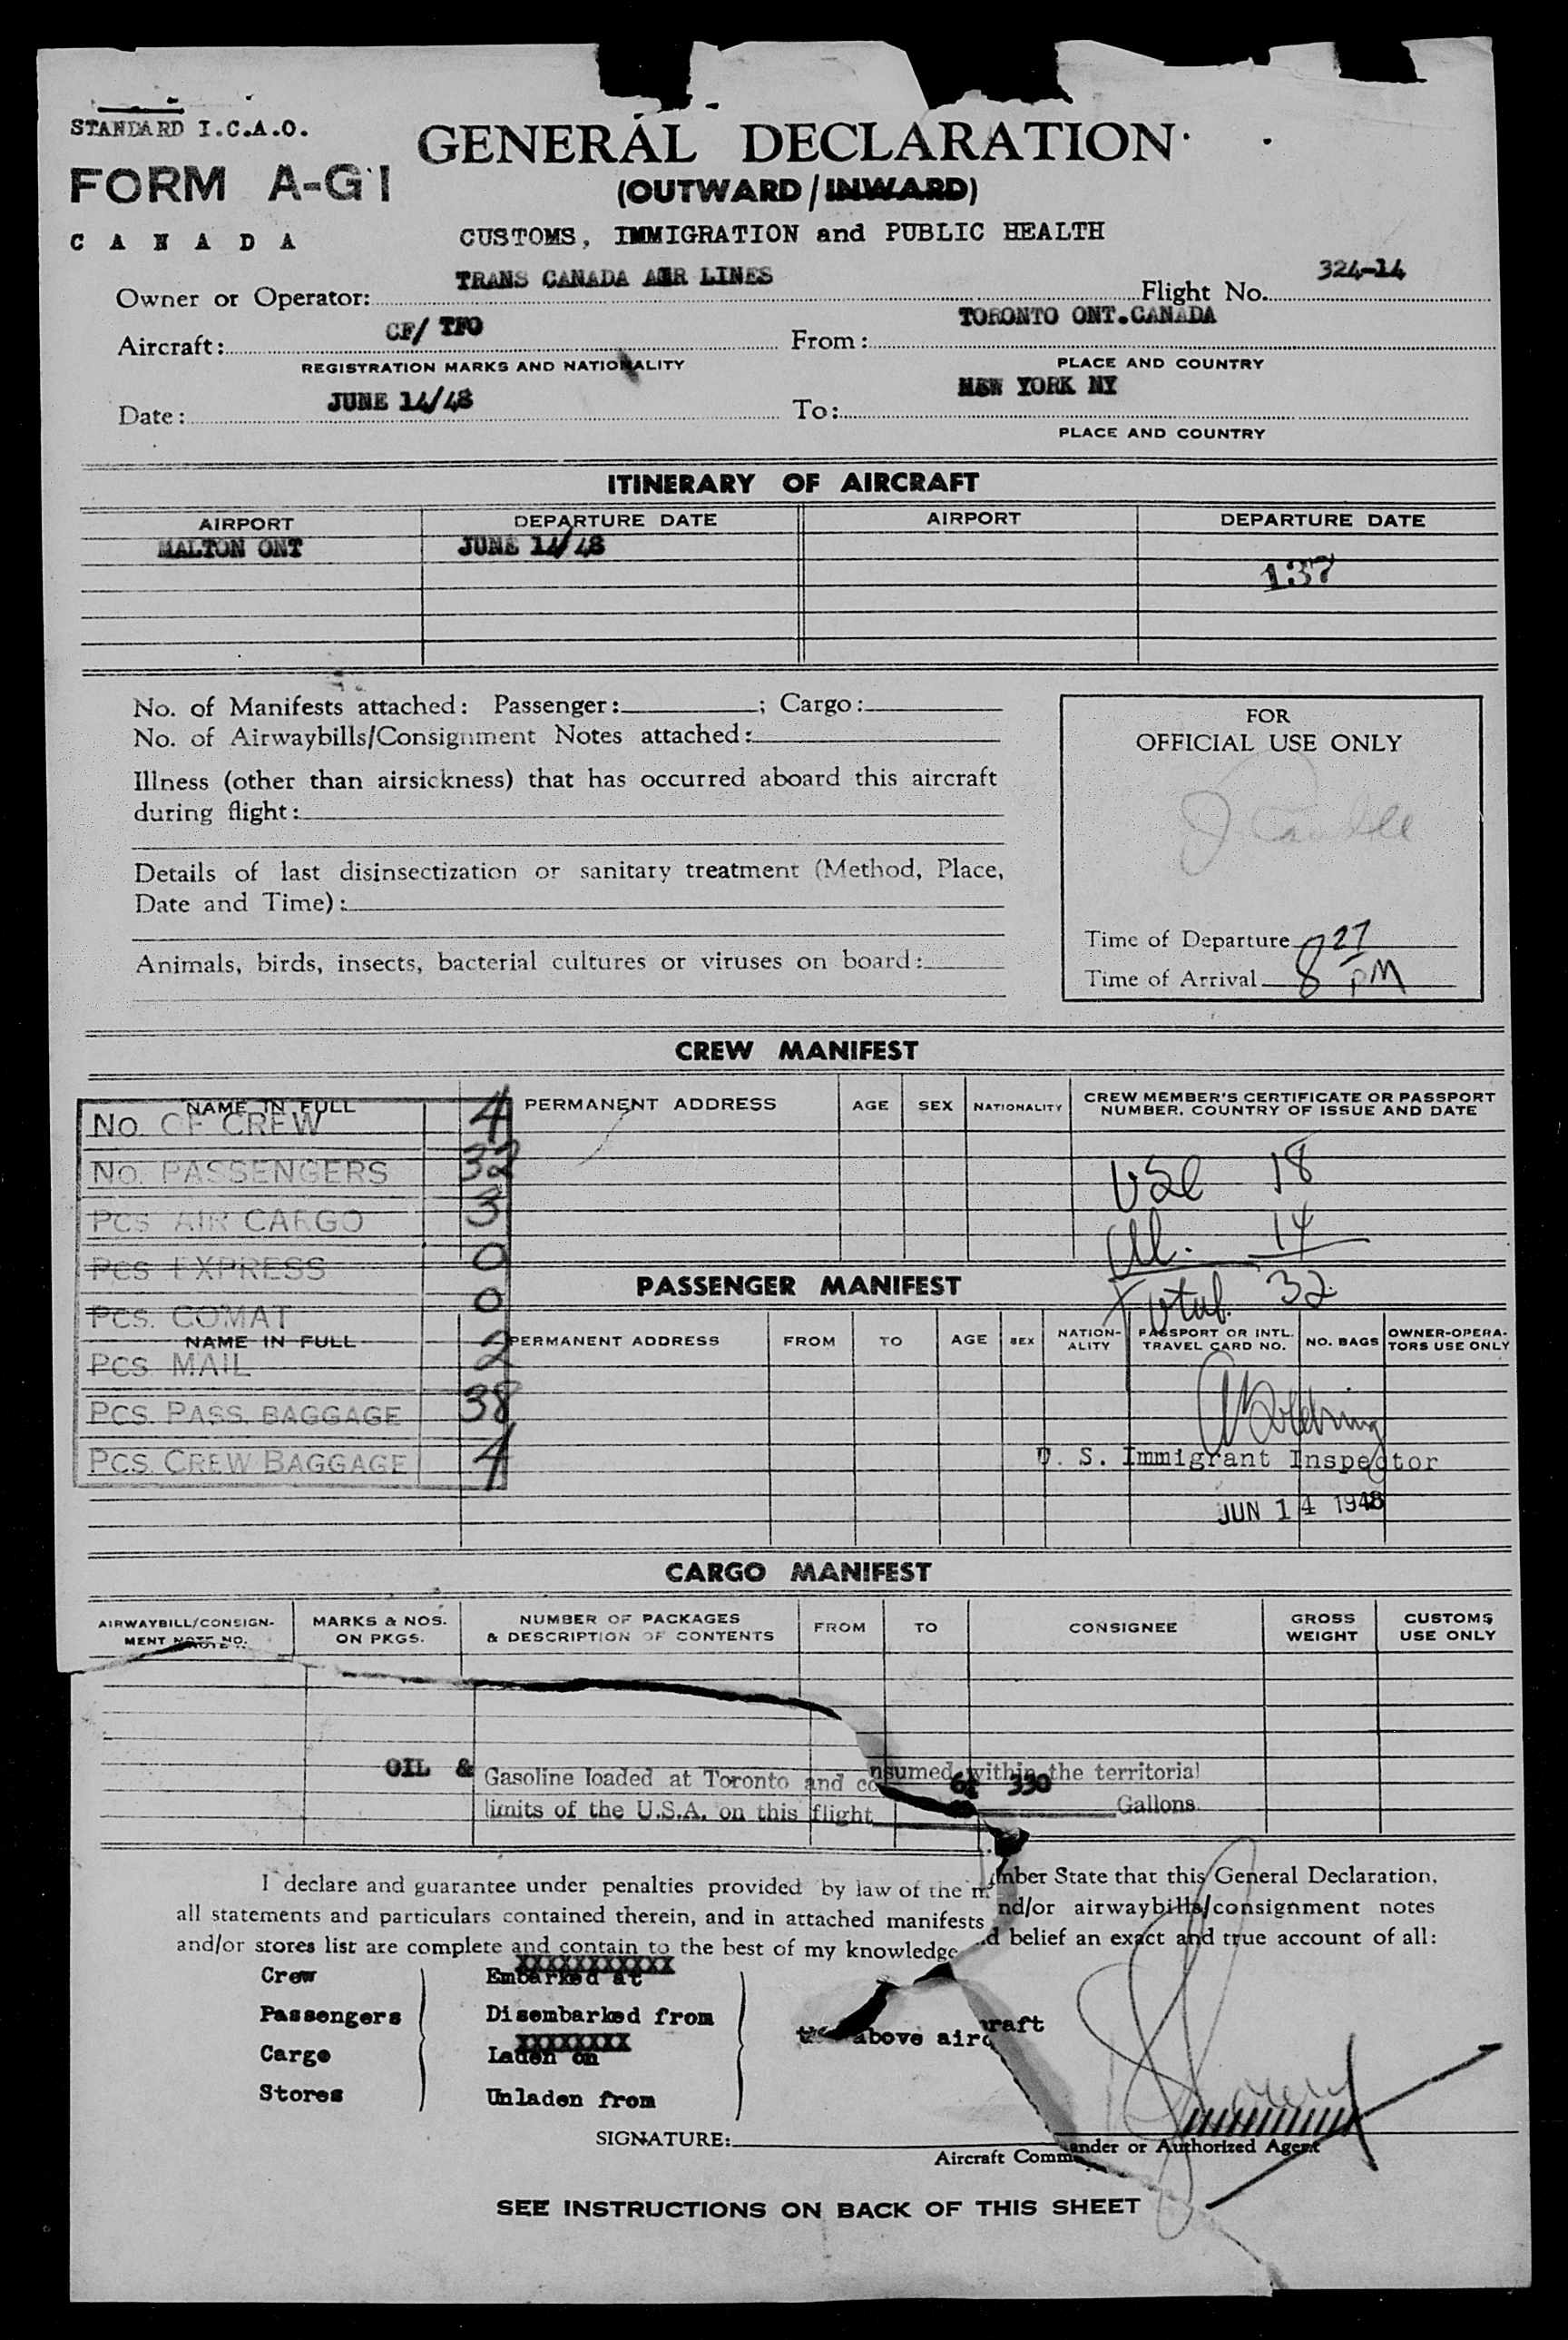 STANDARD I.C.A.O.
FORM A-G1
CANADA
GENERAL DECLARATION
(OUTWARD/INWARD)
CUSTOMS, IMMIGRATION and PUBLIC HEALTH
Owner or Operator: TRANS CANADA AIR LINES Flight No. 324-14
Aircraft: CF/ TFO From: TORONTO ONT.CANADA
REGISTRATION MARKS AND NATIONALITY PLACE AND COUNTRY
Date: JUNE 14/48 To: NEW YORK NY
PLACE AND COUNTRY
ITINERARY OF AIRCRAFT
AIRPORT DEPARTURE DATE AIRPORT DEPARTURE DATE
MALTON ONT JUNE 14/48
137
No. of Manifests attached: Passenger: ; Cargo:
No. of Airwaybills/Consignment Notes attached:
Illness (other than airsickness) that has occurred aboard this aircraft
during flight:
Details of last disinsectization or sanitary treatment (Method, Place,
Date and Time):
Animals, birds, insects, bacterial cultures or viruses on board:
FOR
OFFICIAL USE ONLY
Time of Departure 8 27
Time of Arrival PM
CREW MANIFEST
NAME IN FULL PERMANENT ADDRESS AGE SEX NATIONALITY CREW MEMBER'S CERTIFICATE OR PASSPORT
NUMBER, COUNTRY OF ISSUE AND DATE
No. OF CREW 4
No. PASSENGERS 32
Pcs AIR CARGO 3
Pcs EXPRESS 0
Pcs. COMAT 0
Pcs MAIL 2
Pcs. PASS. BAGGAGE 38
Pcs. CREW BAGGAGE 4
18
14
Total 32
PASSENGER MANIFEST
NAME IN FULL PERMANENT ADDRESS FROM TO AGE SEX NATION-
ALITY PASSPORT OR INTL.
TRAVEL CARD NO. NO. BAGS OWNER-OPERA-
TORS USE ONLY
U. S. Immigrant Inspector
JUN 14 1948
CARGO MANIFEST
AIRWAYBILL/CONSIGN-
MENT NOTE NO. MARKS & NOS.
ON PKGS. NUMBER OF PACKAGES
& DESCRIPTION OF CONTENTS FROM TO CONSIGNEE GROSS
WEIGHT CUSTOMS
USE ONLY
OIL & Gasoline loaded at Toronto and consumed within the territorial
limits of the U.S.A. on this flight 330 Gallons.
I declare and guarantee under penalties provided by law of the member State that this General Declaration,
all statements and particulars contained therein, and in attached manifests and/or airwaybills/consignment notes
and/or stores list are complete and contain to the best of my knowledge and belief an exact and true account of all:
Crew
Passengers
Cargo
Stores
XXXXXXXXXXX
Embarked at
Disembarked from
XXXXXXXX
Laden on
Unladen from
the above aircraft
SIGNATURE:
Aircraft Commander or Authorized Agent
SEE INSTRUCTIONS ON BACK OF THIS SHEET